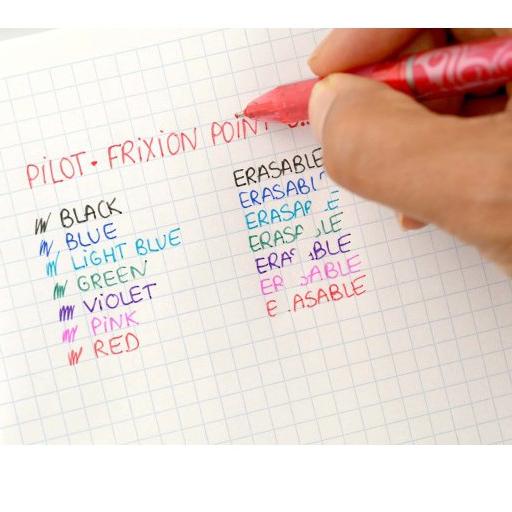 PILOT · FRIXION POINT
BLACK
BLUE
LIGHT BLUE
GREEN
VIOLET
PINK
RED
ERASABLE
ERASABL
ERASAB LE
ERASA LE
ERA ABLE
ER ABLE
E ASABLE